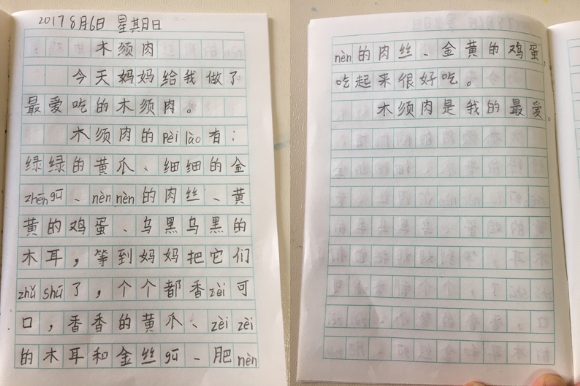 2017 8月6日 星期日
木须肉
今天妈妈给我做了
最爱吃的木须肉。
木须肉的pèi lào有：
绿绿的黄爪、细细的金
zhēn gū、nèn nèn的肉丝、黄
黄的鸡蛋、乌黑乌黑的
木耳，等到妈妈把它们
zhǔ shū了，个个都香zèi可
口，香香的黄爪、zèi zèi
的木耳和金丝gū、肥nèn
nèn的肉丝、金黄的鸡蛋，
吃起来很好吃。
木须肉是我的最爱